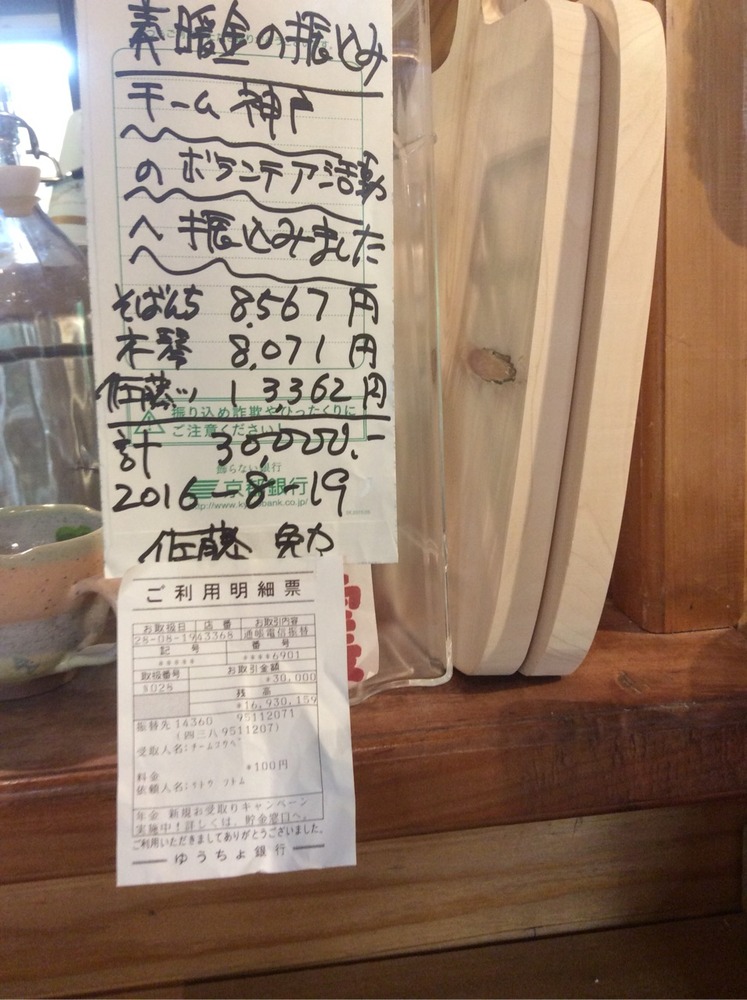 義暖金の振込み
チーム神戸
のボランテア活動
へ振込みました
そばんち 8,567円
木琴 8,071円
佐藤ッ 13,362円
振り込め詐欺やひったくりに
ご注意ください!
計 30,000.-
飾らない銀行
京都銀行
2016-8-19
佐藤 勉
ご利用明細票
お取扱日 店番 お取引内容
28-08-19 43368 通帳電信振替
記号 番号
***** ****6901
取扱番号 お取引金額
S028 *30,000
残高
*16,930,159
振替先 14360 95112071
(四三八 9511207)
受取人名:チームコウベ
*100円
料金
依頼人名:サトウ ツトム
年金 新規お受取りキャンペーン
実施中!詳しくは、貯金窓口へ。
ご利用いただきましてありがとうございました。
ゆうちょ銀行